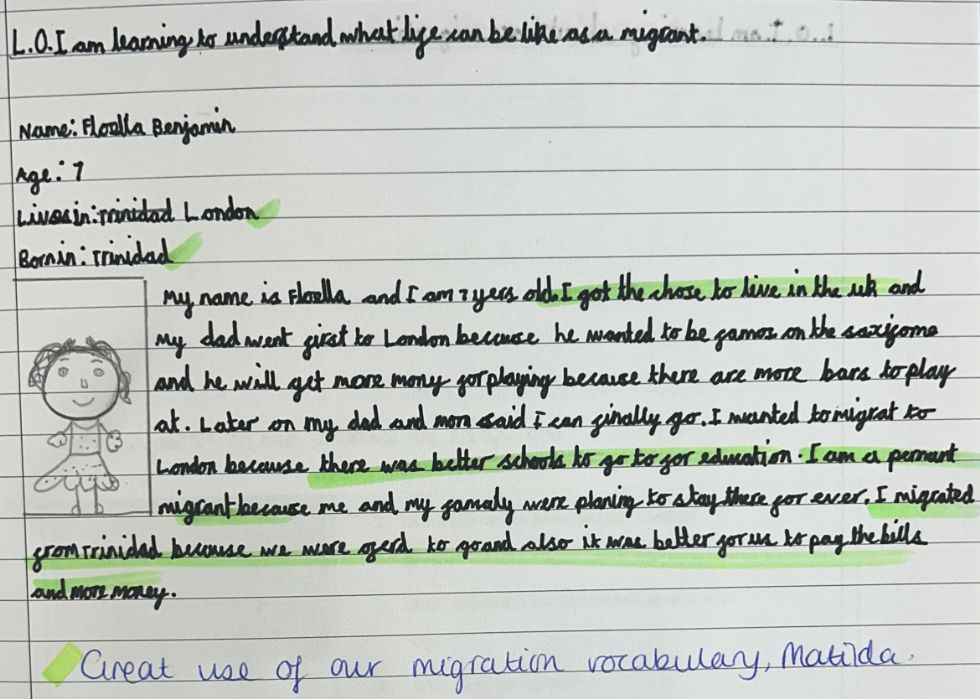 L.O. I am learning to understand what life can be like as a migrant.
Name: Floella Benjamin
Age: 7
Lives in: Trinidad London
Born in: Trinidad
My name is Floella and I am 7 yers old. I got the chose to live in the uk and
my dad went first to London because he wanted to be famos on the saxifome
and he will get more mony for playing because there are more bars to play
at. Later on my dad and mon said i can finally go. I wanted to migrat to
London because there was better schools to go to for education. I am a pernant
migrant because me and my famaly were planing to stay there for ever. I migrated
from Trinidad because we were oferd to go and also it was better for us to pay the bills
and more money.
Great use of our migration vocabulary, Matilda.